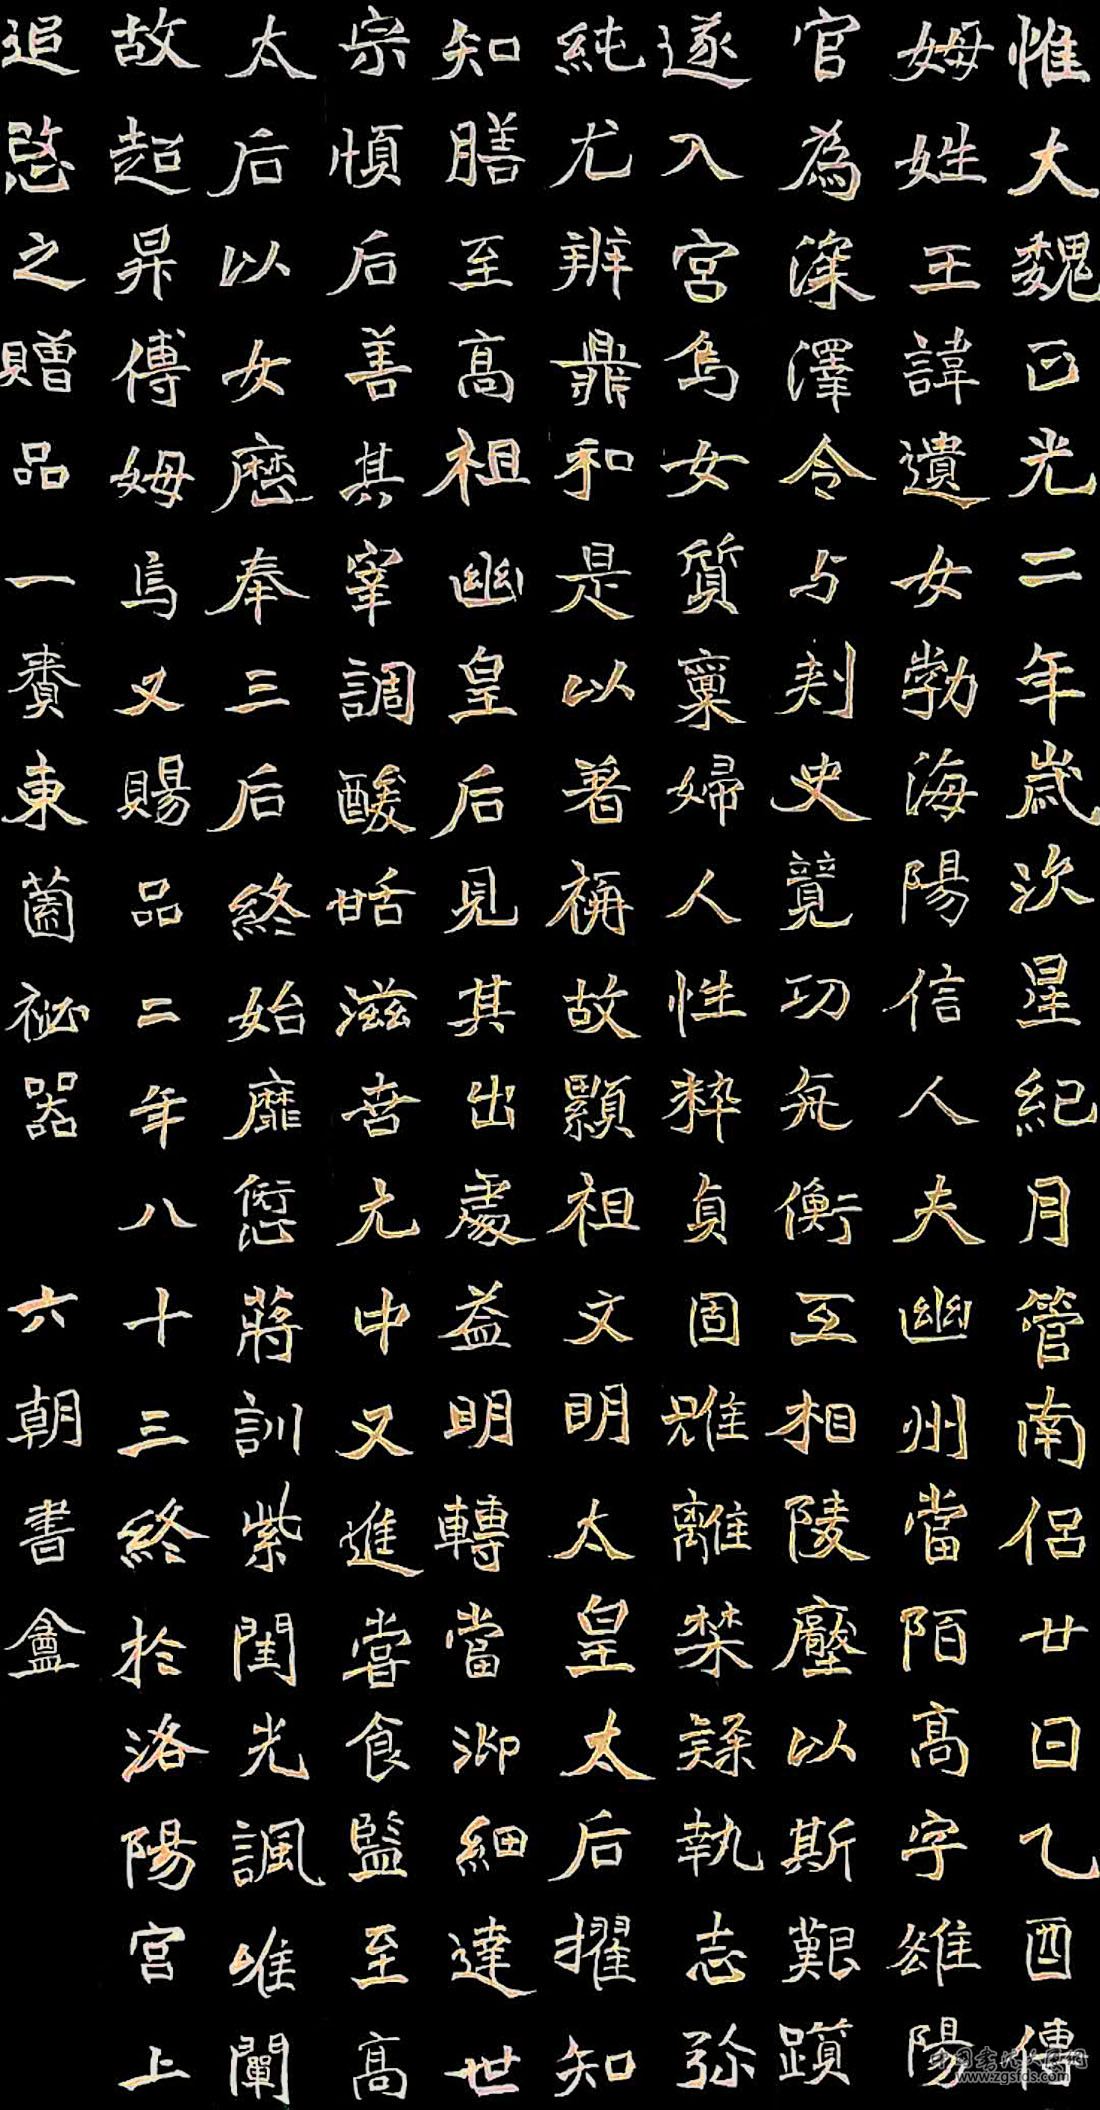 惟大魏正光二年歲次星紀月管南侣廿日乙酉傅
姆姓王諱遺女勃海陽信人夫幽州當陌高字雄陽
官為深澤令与刺史競功冤衡互相陵壓以斯艱躓
遂入宮焉女質稟婦人性粹貞固雖離禁隸執志弥
純尤辨鼎和是以著稱故顯祖文明太皇太后擢知
知膳至高祖幽皇后見其出處益明轉當御細達世
宗順后善其宰調酸甜滋味允中又進嘗食監至高
太后以女歷奉三后終始靡愆蔣訓紫閨光諷唯闡
故超昇傅姆焉又賜品二年八十三終於洛陽宮上
追愍之贈品一賚東薗祕器
六朝書盦
中国书法大图网
www.zgsfds.com